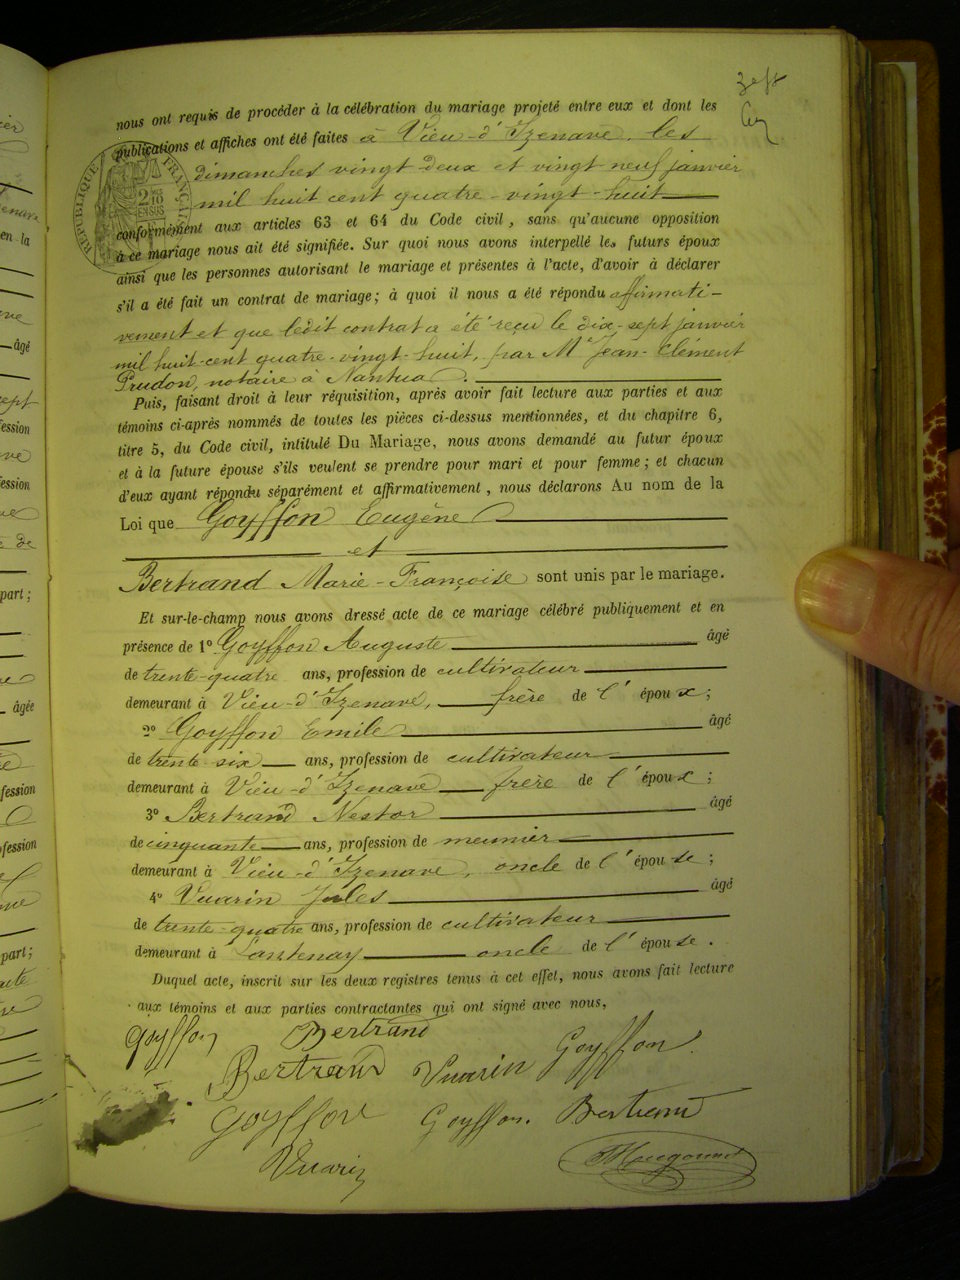 nous ont requis de procéder à la célébration du mariage projeté entre eux et dont les
publications et affiches ont été faites à Vieu-d'Izenave, les
dimanches vingt deux et vingt neuf janvier
mil huit cent quatre-vingt-huit
conformément aux articles 63 et 64 du Code civil, sans qu'aucune opposition
à ce mariage nous ait été signifiée. Sur quoi nous avons interpellé les futurs époux
ainsi que les personnes autorisant le mariage et présentes à l'acte, d'avoir à déclarer
s'il a été fait un contrat de mariage; à quoi il nous a été répondu affirmati-
vement et que ledit contrat a été reçu le dix-sept janvier
mil huit-cent quatre-vingt-huit, par Me Jean-Clément
Prudon, notaire à Nantua.
Puis, faisant droit à leur réquisition, après avoir fait lecture aux parties et aux
témoins ci-après nommés de toutes les pièces ci-dessus mentionnées, et du chapitre 6,
titre 5, du Code civil, intitulé Du Mariage, nous avons demandé au futur époux
et à la future épouse s'ils veulent se prendre pour mari et pour femme; et chacun
d'eux ayant répondu séparément et affirmativement, nous déclarons Au nom de la
Loi que Goyffon Eugène
et
Bertrand Marie-Françoise sont unis par le mariage.
Et sur-le-champ nous avons dressé acte de ce mariage célébré publiquement et en
présence de 1° Goyffon Auguste âgé
de trente-quatre ans, profession de cultivateur
demeurant à Vieu-d'Izenave, frère de l'époux;
2° Goyffon Emile âgé
de trente-six ans, profession de cultivateur
demeurant à Vieu-d'Izenave frère de l'époux;
3° Bertrand Nestor âgé
de cinquante ans, profession de meunier
demeurant à Vieu-d'Izenave, oncle de l'épouse;
4° Vuarin Jules âgé
de trente-quatre ans, profession de cultivateur
demeurant à Lantenay oncle de l'épouse.
Duquel acte, inscrit sur les deux registres tenus à cet effet, nous avons fait lecture
aux témoins et aux parties contractantes qui ont signé avec nous,
Goyffon Bertrand
Bertrand Vuarin Goyffon
Goyffon Goyffon. Bertrand
Vuarin